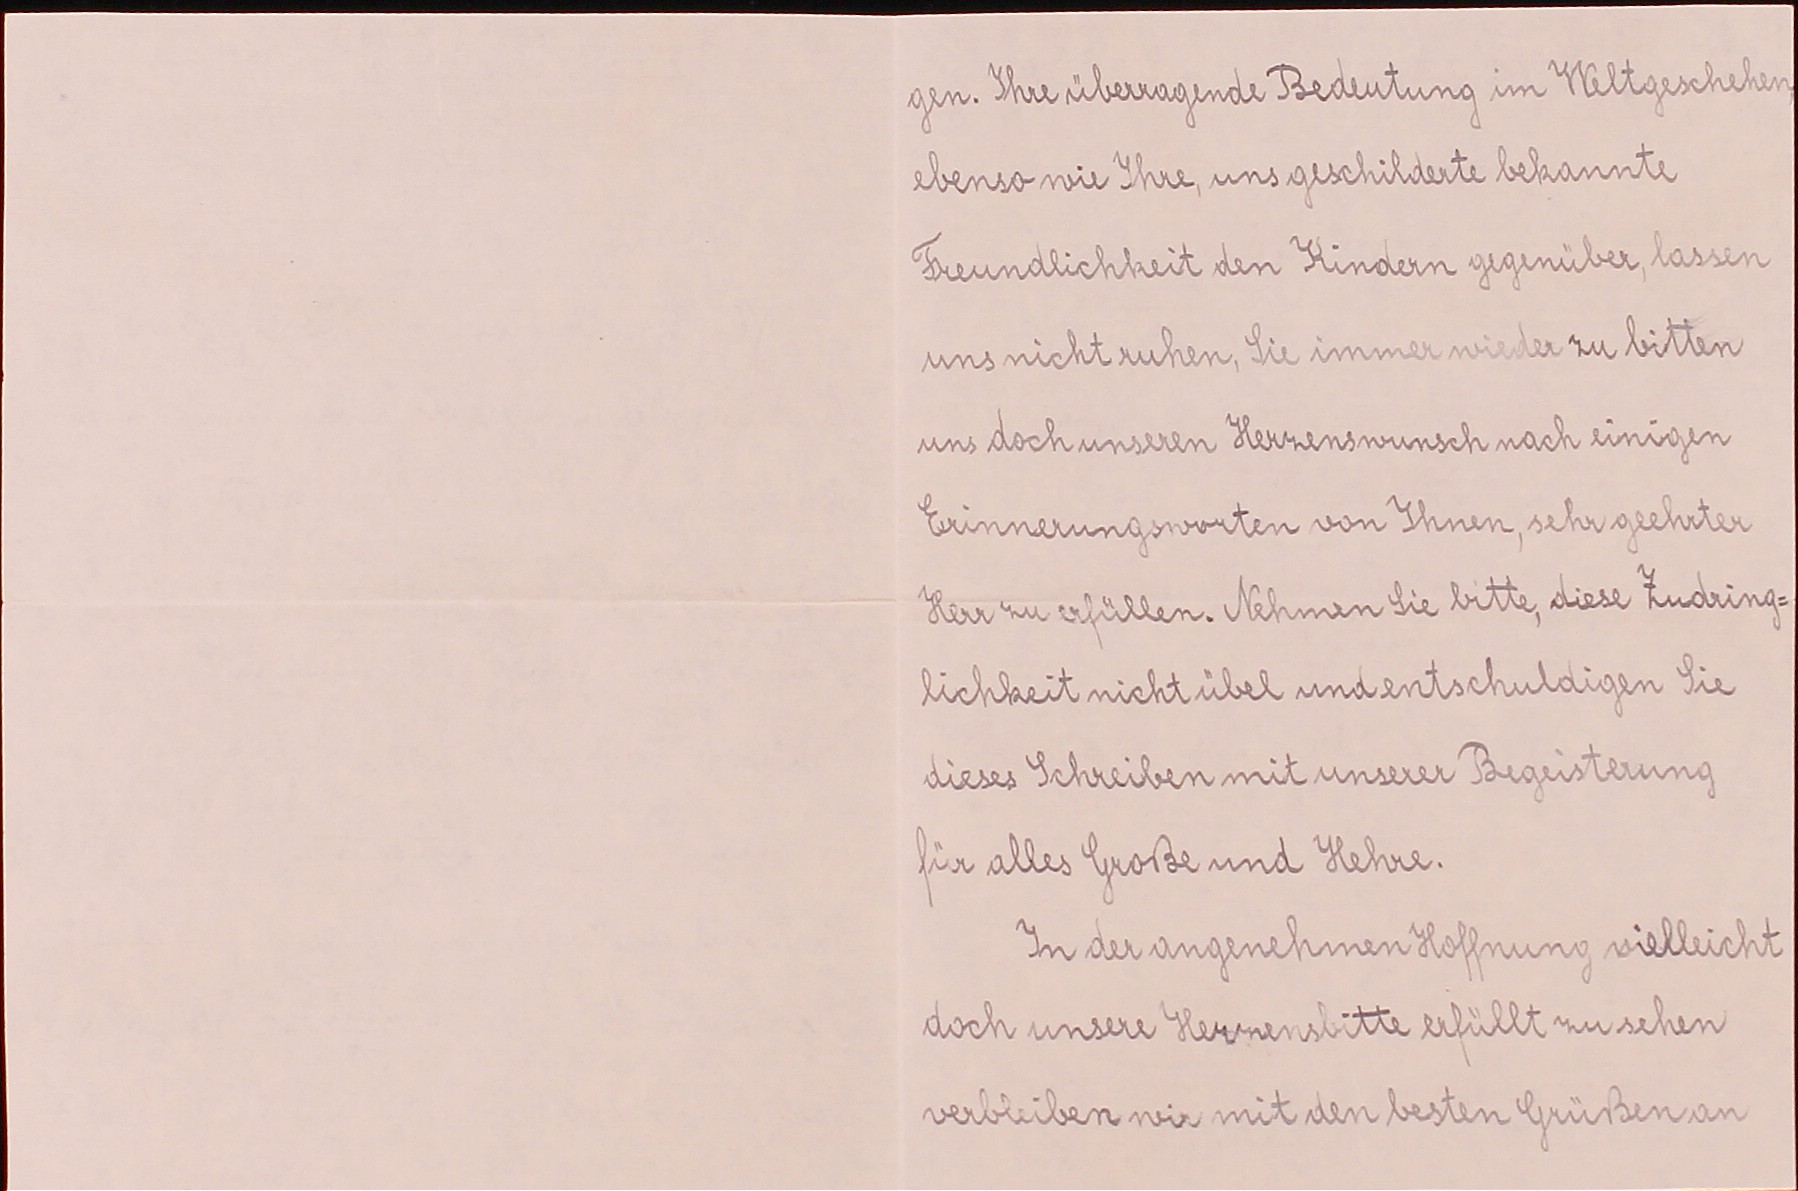 gen. Ihre überragende Bedeutung im Weltgeschehen,
ebenso wie Ihre, uns geschilderte bekannte
Freundlichkeit den Kindern gegenüber, lassen
uns nicht ruhen, Sie immer wieder zu bitten
uns doch unseren Herzenswunsch nach einigen
Erinnerungsworten von Ihnen, sehr geehrter
Herr zu erfüllen. Nehmen Sie bitte, diese Zudring=
lichkeit nicht übel und entschuldigen Sie
dieses Schreiben mit unserer Begeisterung
für alles Große und Hehre.
In der angenehmen Hoffnung vielleicht
doch unsere Herzensbitte erfüllt zu sehen
verbleiben wir mit den besten Grüßen an